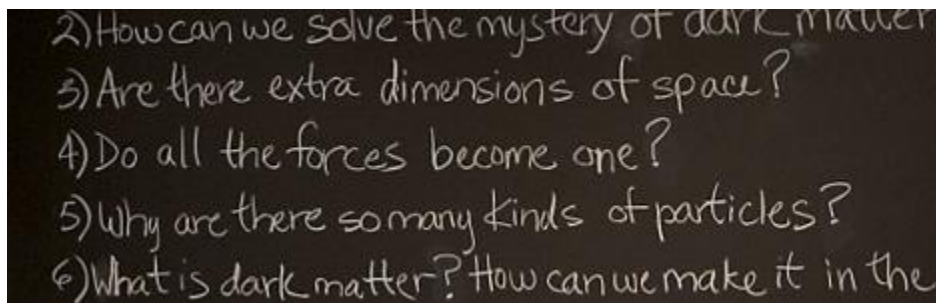 2) How can we solve the mystery of dark matter
3) Are there extra dimensions of space?
4) Do all the forces become one?
5) Why are there so many kinds of particles?
6) What is dark matter? How can we make it in the